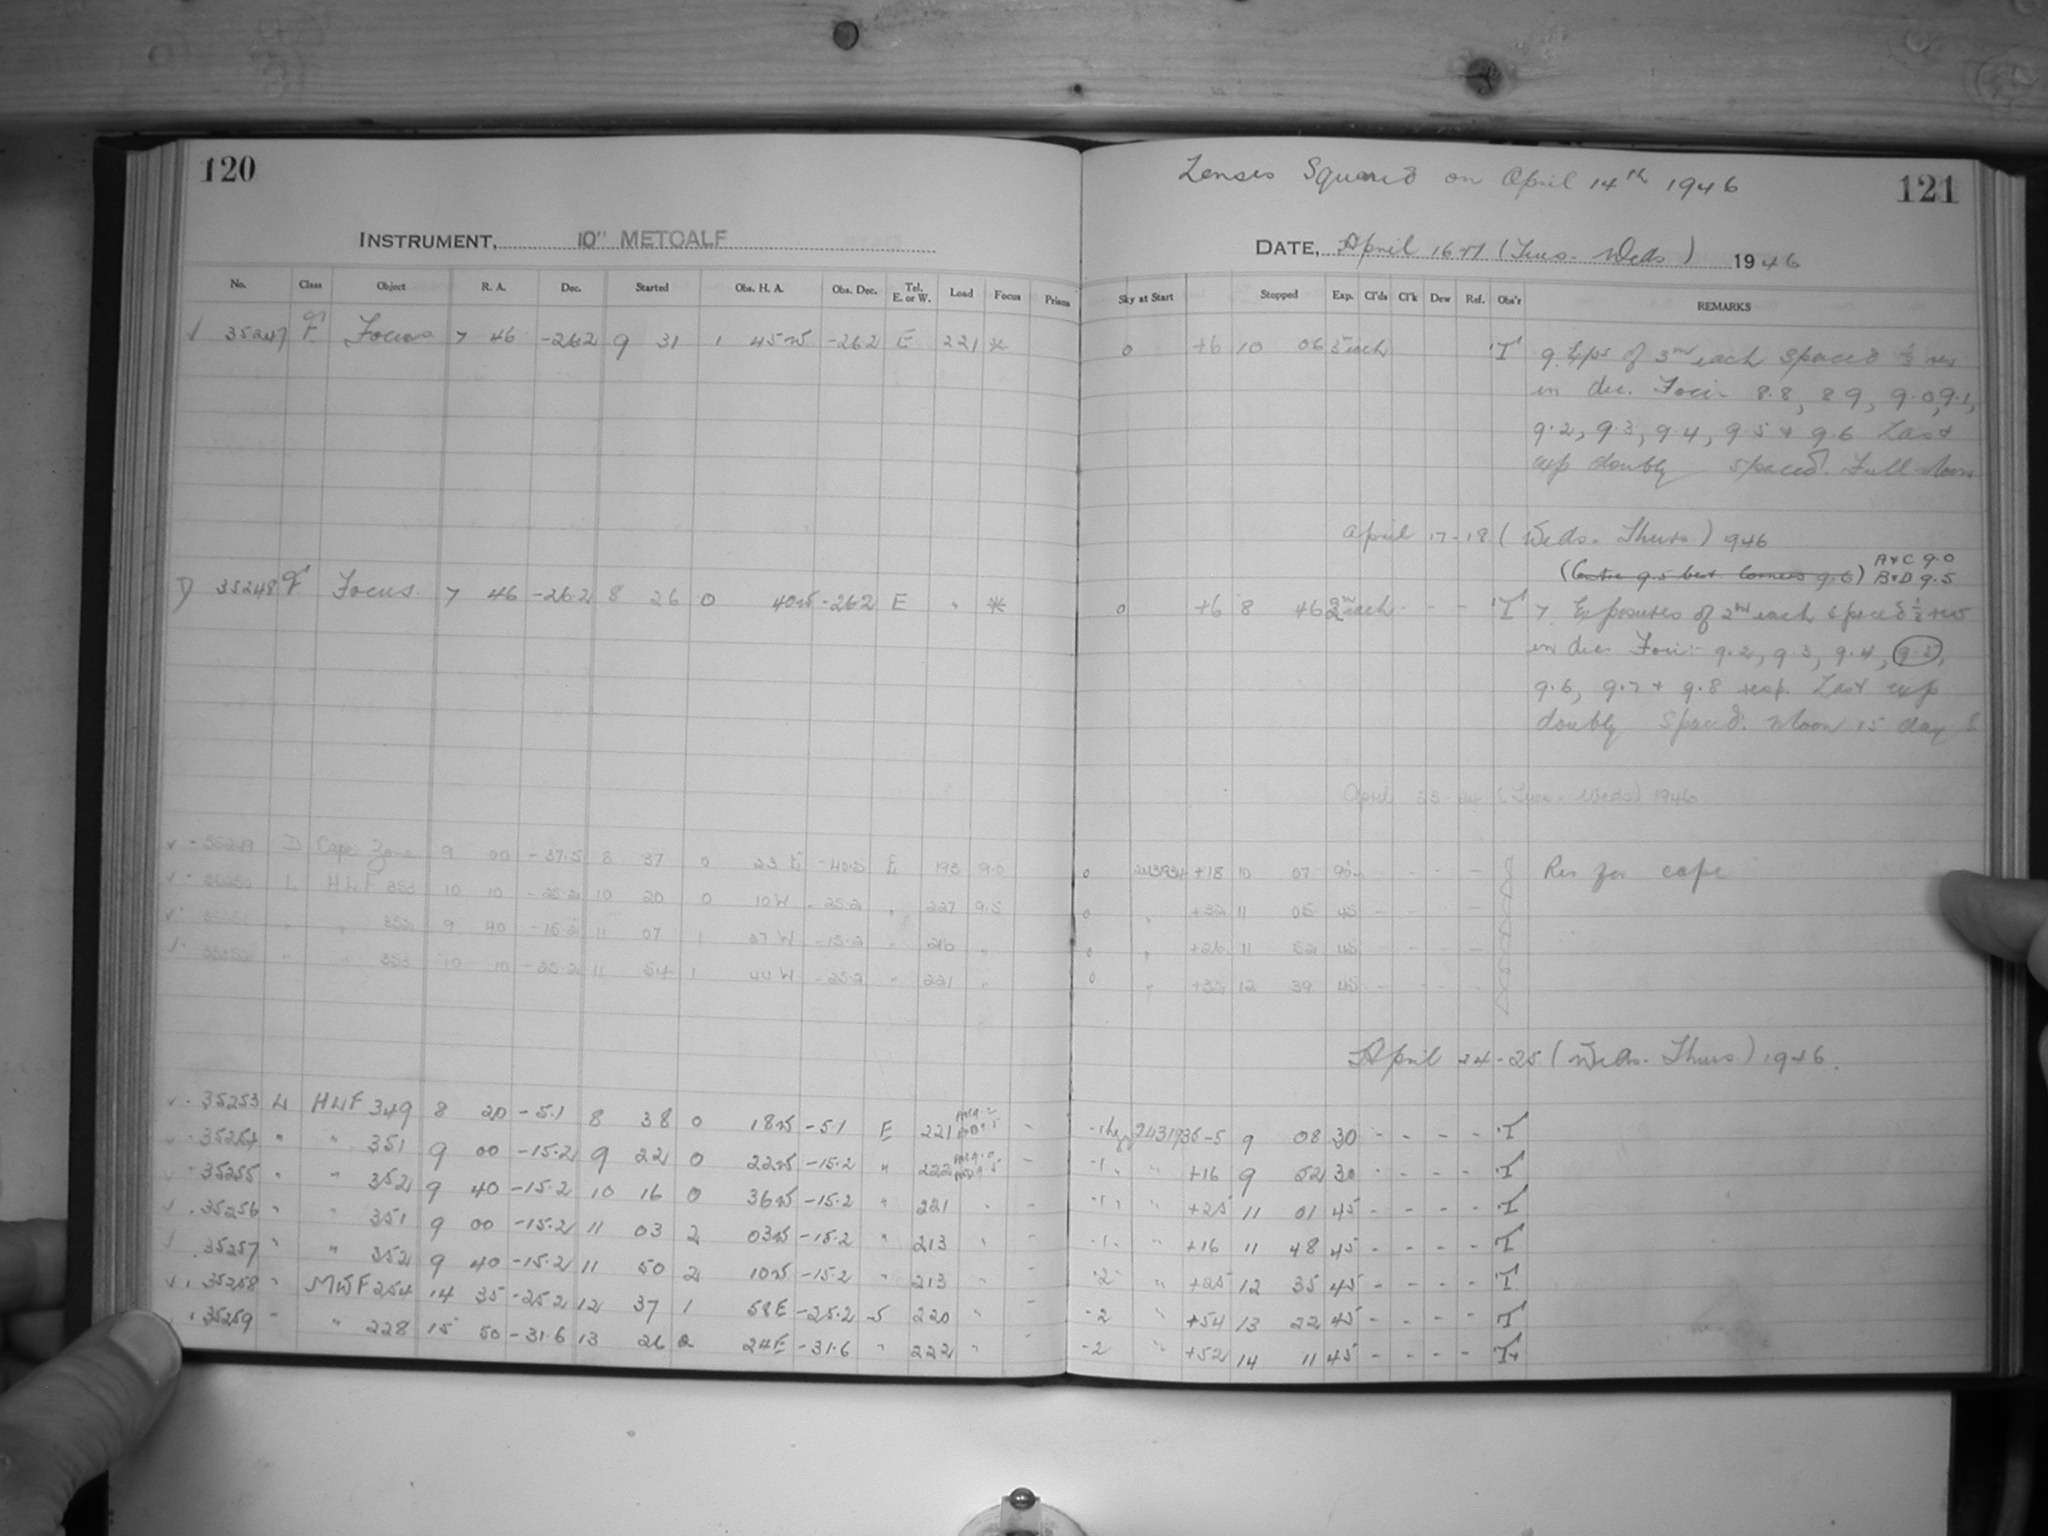 120
INSTRUMENT, 10" METCALF
No. Class Object R. A. Dec. Started Obs. H. A. Obs. Dec. Tel. E. or W. Load Focus Prisms
35247 F Focus 7 46 -26.2 9 31 1 45W -26.2 E 221 *
35248 F Focus 7 46 -26.2 8 26 0 40W -26.2 E " *
35249 D Cape Zone 9 00 -37.5 8 37 0 23 E -40.5 E 193 9.0
35250 L HLF 353 10 10 -25.2 10 20 0 10W -25.2 " 227 9.5
35251 " " 352 9 40 -15.2 11 07 1 27 W -15.2 " 216 "
35252 " " 353 10 10 -25.2 11 54 1 44 W -25.2 " 221 "
35253 L HLF 349 8 20 -5.1 8 38 0 18W -5.1 E 221 -
35254 " " 351 9 00 -15.2 9 22 0 22W -15.2 " 222 -
35255 " " 352 9 40 -15.2 10 16 0 36W -15.2 " 221 " -
35256 " " 351 9 00 -15.2 11 03 2 03W -15.2 " 213 " -
35257 " " 352 9 40 -15.2 11 50 2 10W -15.2 " 213 " -
35258 " MWF 254 14 35 -25.2 12 37 1 58E -25.2 S 220 " -
35259 " " 228 15 50 -31.6 13 26 2 24E -31.6 " 222 " -
Lenses Squared on April 14th 1946
121
DATE, April 16-17 (Tues. - Weds) 1946
Sky at Start Stopped Exp. Cl'ds Cl'k Dew Ref. Obs'r REMARKS
0 +6 10 06 3m each T 9 Exps of 3m each spaced 1/3 rev
in dec. Foci 8.8, 8.9, 9.0, 9.1,
9.2, 9.3, 9.4, 9.5 + 9.6 Last
exp doubly spaced. Full Moon
April 17-18 (Weds. - Thurs.) 1946
(Centre 9.5 best. Corners 9.6) A+C 9.0
B+D 9.5
0 +6 8 46 2m each - - - T 7 Exposures of 2m each spaced 1/2 rev
in dec. Foci:- 9.2, 9.3, 9.4, 9.5,
9.6, 9.7 + 9.8 resp. Last exp
doubly spaced. Moon 15 days
April 23-24 (Tues. - Weds) 1946
0 +18 10 07 90m - - - - Res for cape
0 " +32 11 05 45 - - - -
0 " +26 11 52 45 - - - -
0 " +32 12 39 45 - - - -
April 24-25 (Weds. - Thurs.) 1946.
2431935 -5 9 08 30 - - - - T
-1 " +16 9 52 30 - - - - T
-1 " +25 11 01 45 - - - - T
-1 " +16 11 48 45 - - - - T
-2 " +25 12 35 45 - - - - T
-2 " +54 13 22 45 - - - - T
-2 " +52 14 11 45 - - - - T